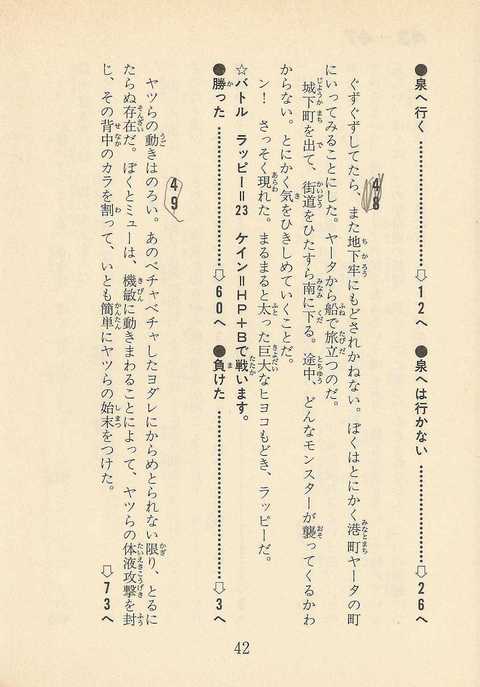 ●泉へ行く………⇨12へ ●泉へは行かない………⇨26へ
48
ぐずぐずしてたら、また地下牢にもどされかねない。ぼくはとにかく港町ヤータの町
にいってみることにした。ヤータから船で旅立つのだ。
城下町を出て、街道をひたすら南に下る。途中、どんなモンスターが襲ってくるかわ
からない。とにかく気をひきしめていくことだ。
ン! さっそく現れた。まるまると太った巨大なヒヨコもどき、ラッピーだ。
☆バトル ラッピー=23 ケイン=HP+Bで戦います。
●勝った………⇨60へ ●負けた………⇨3へ
49
ヤツらの動きはのろい。あのベチャベチャしたヨダレにからめとられない限り、とるに
たらぬ存在だ。ぼくとミューは、機敏に動きまわることによって、ヤツらの体液攻撃を封
じ、その背中のカラを割って、いとも簡単にヤツらの始末をつけた。
⇨73へ
42